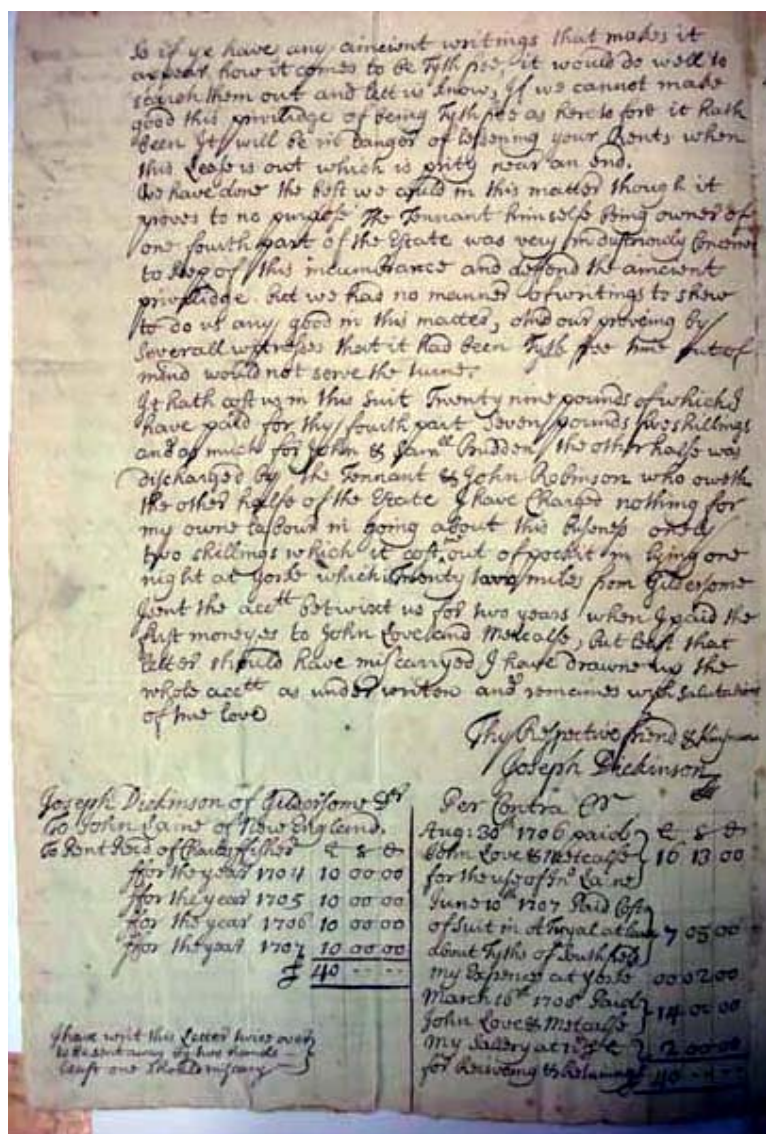 So if ye have any aincient writings that makes it
appear how it comes to be Tyth free, it would do well to
search them out and lett us know, If we cannot make
good this priviledge of being Tyth free as heretofore it hath
been It will be in danger of lessening your Rents when
this Lease is out which is pritty near an end.
We have done the best we could in this matter though it
proves to no purpose The Tennant himselfe being owner of
one fourth part of the Estate was very industriously Concerned
to step of this incumbrance and deffend the aincient
priviledge. but we had no manner of writings to shew
to do us any good in this matter, and our proveing by
Severall wittnesses that it had been Tyth free time out of
mind would not serve the turne.
It hath cost us in this Suit Twenty nine pounds of which I
have paid for thy fourth part Seven pounds five shillings
and as much for John & Samll Prudden the other halfe was
discharged by the Tennant & John Robinson who oweth
the other halfe of the Estate I have Charged nothing for
my owne labour in going about this business onely
two shillings which it cost out of pockit in lying one
night at yorke which Twenty two miles from Gildersome
I sent the acctt betwixt us for two years when I paid the
first moneyes to John Love and Metcalfe, but least that
letter should have miscarryed I have drawne up the
whole acctt as under writen and remaines with Salutations
of true love
Thy Respective friend & Kinsman
Joseph Dickinson
Joseph Dickinson of Gildersome Dr
To John Laine of New England.
To Rent Recd of Charles ffisher £ s d
ffor the year 1704 10 00 00
ffor the year 1705 10 00 00
ffor the year 1706 10 00 00
ffor the year 1707 10 00 00
£ 40 -- --
I have writ this Letter twice over
to be sent away by two hands
least one should miscary
Per Contra Cr
Aug: 30th 1706 paid £ s d
John Love & Metcalfe 16 13 00
for the use of Jno Laine
June 10th 1707 Paid Costs
of Suit in a Tryal at Law 7 05 00
about Tyths of
my Expence at yorke 00 02 00
March 16th 1708 Paid 14 00 00
John Love & Metcalfe
my Sallery at 2 00 00
for Receiveing & Returning 40 -- --